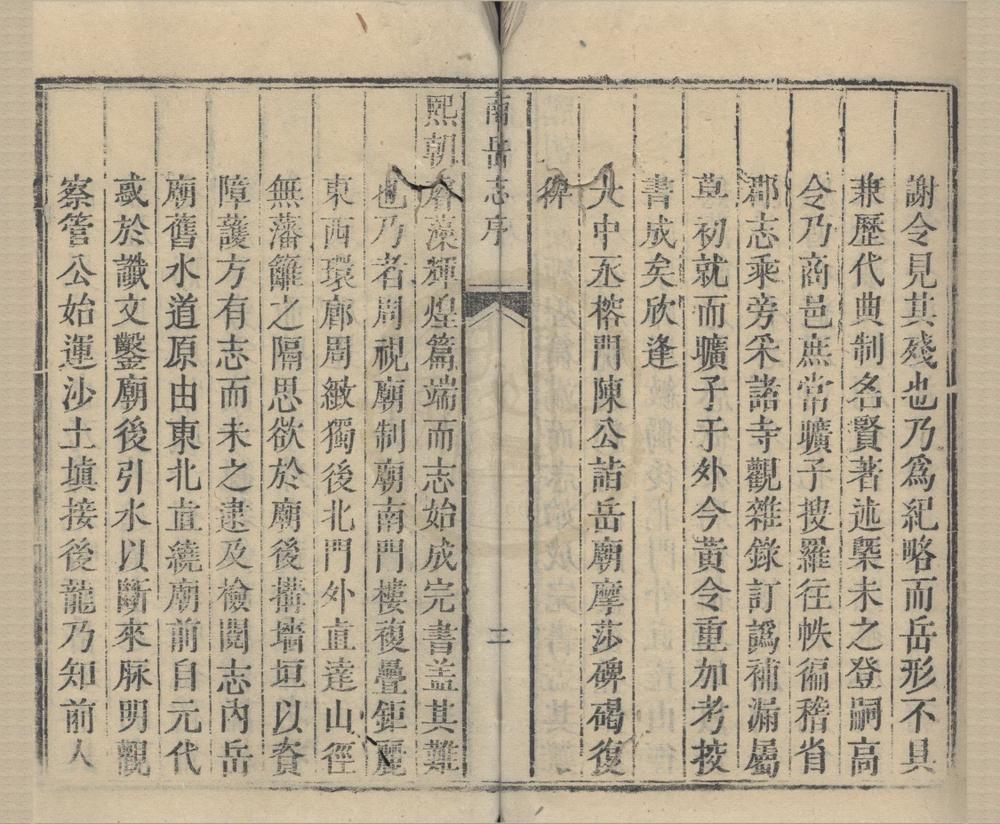 謝令見其殘也乃爲紀略而岳形不具
兼歷代典制名賢著述槩未之登嗣高
令乃商邑庶常曠子搜羅往帙徧稽省
郡志乘旁采諸寺觀雜錄訂譌補漏屬
草初就而曠子于外今黃令重加考按
書成矣欣逢
大中丞榕門陳公詣岳廟摩莎碑碣復
稗
南岳志序
二
熙朝睿藻輝煌篇端而志始成完書盖其難
也乃者周視廟制廟南門樓複疊鉅麗
東西環廊周緻獨後北門外直達山徑
無藩籬之隔思欲於廟後搆墻垣以資
障護方有志而未之逮及檢閱志內岳
廟舊水道原由東北直繞廟前自元代
惑於讖文鑿廟後引水以斷來脉明觀
察管公始運沙土填接後龍乃知前人